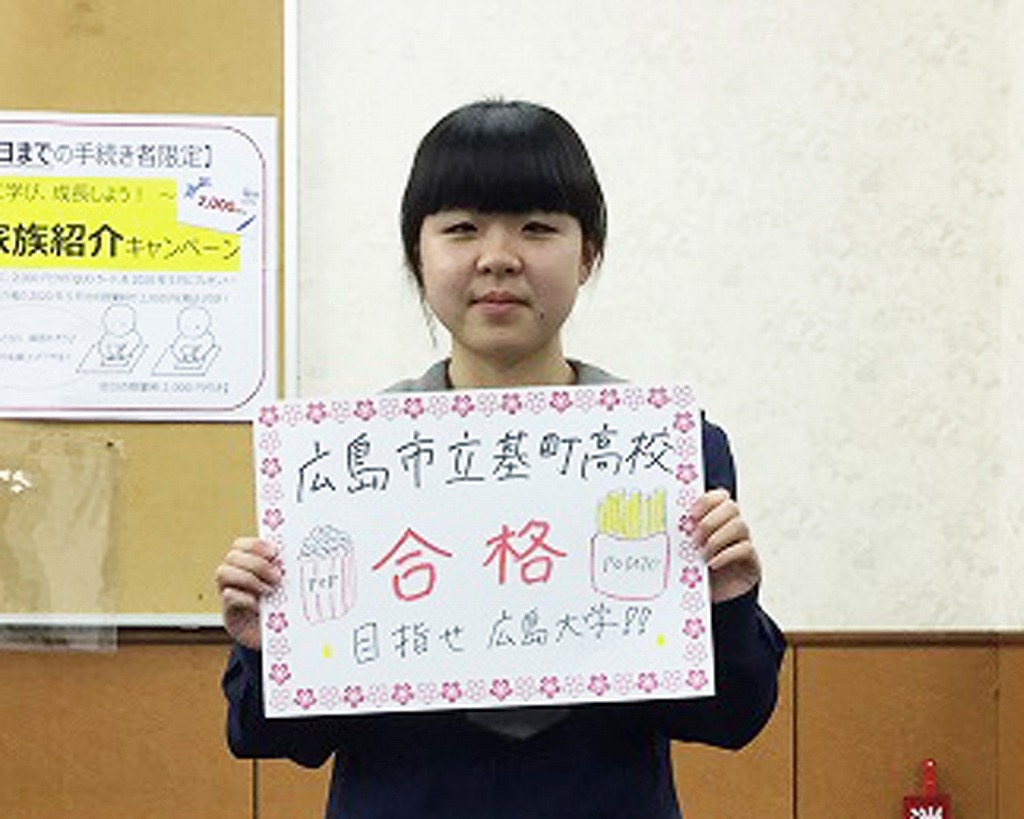 日までの手続き者限定】
に学び、成長しよう！ ～
2,000
家族紹介キャンペーン
広島市立基町高校
合格
POP
POTATO
目指せ 広島大学!!